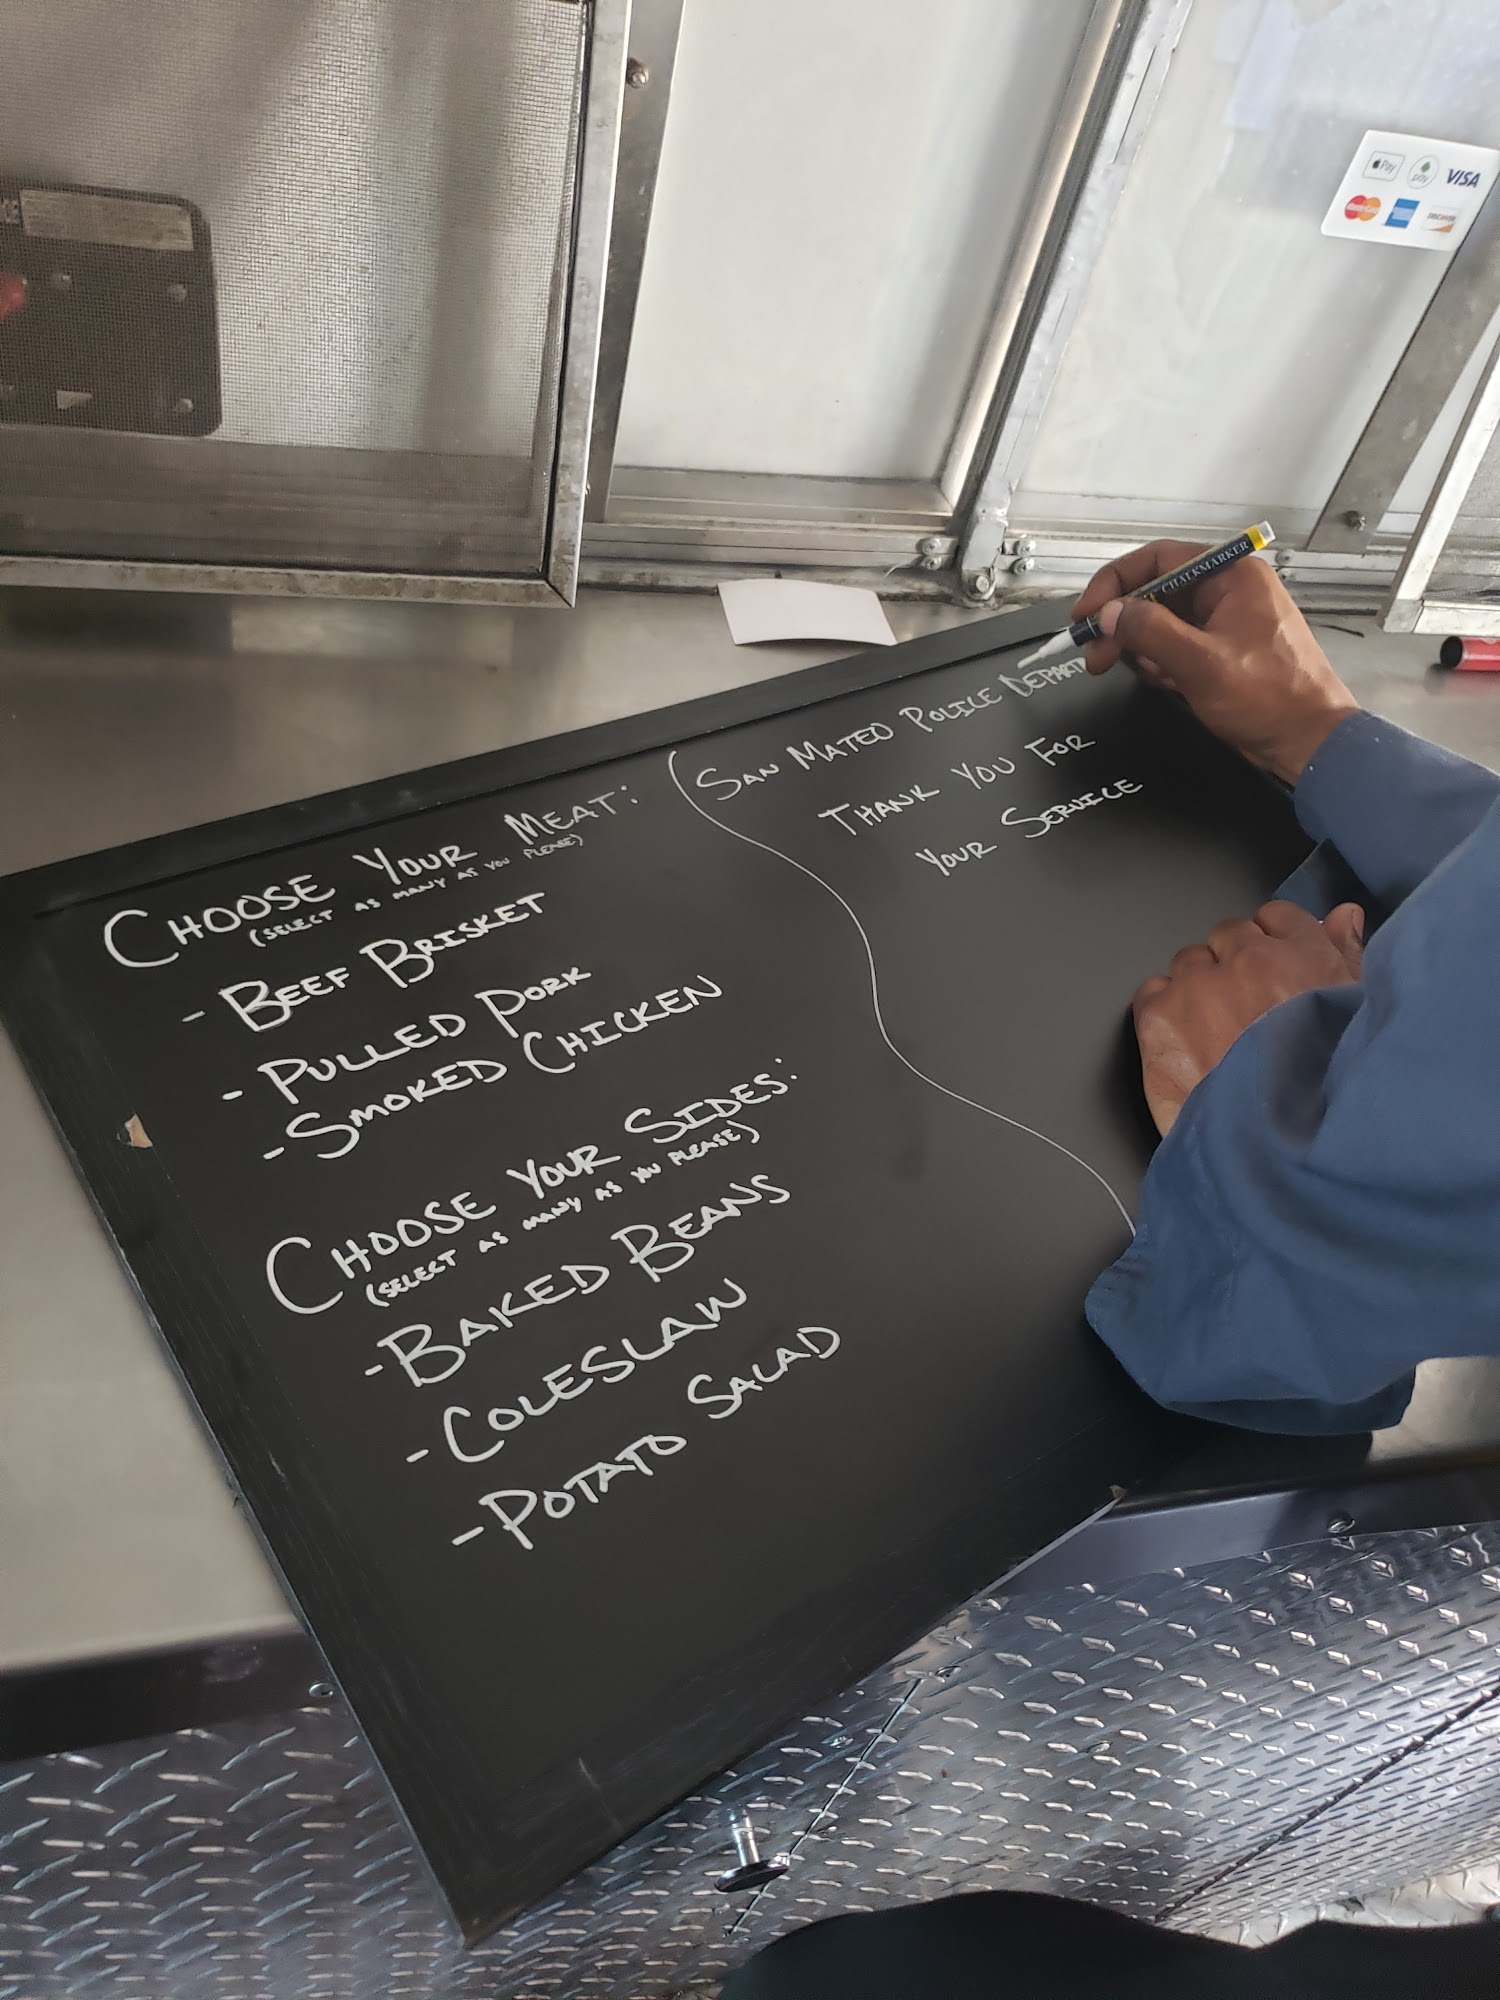 CHOOSE YOUR MEAT:
(SELECT AS MANY AS YOU PLEASE)
- BEEF BRISKET
- PULLED PORK
- SMOKED CHICKEN
CHOOSE YOUR SIDES:
(SELECT AS MANY AS YOU PLEASE)
- BAKED BEANS
- COLESLAW
- POTATO SALAD
SAN MATEO POLICE DEPART
THANK YOU FOR
YOUR SERVICE
CHALKMARKER
Pay pay VISA
MasterCard DISCOVER